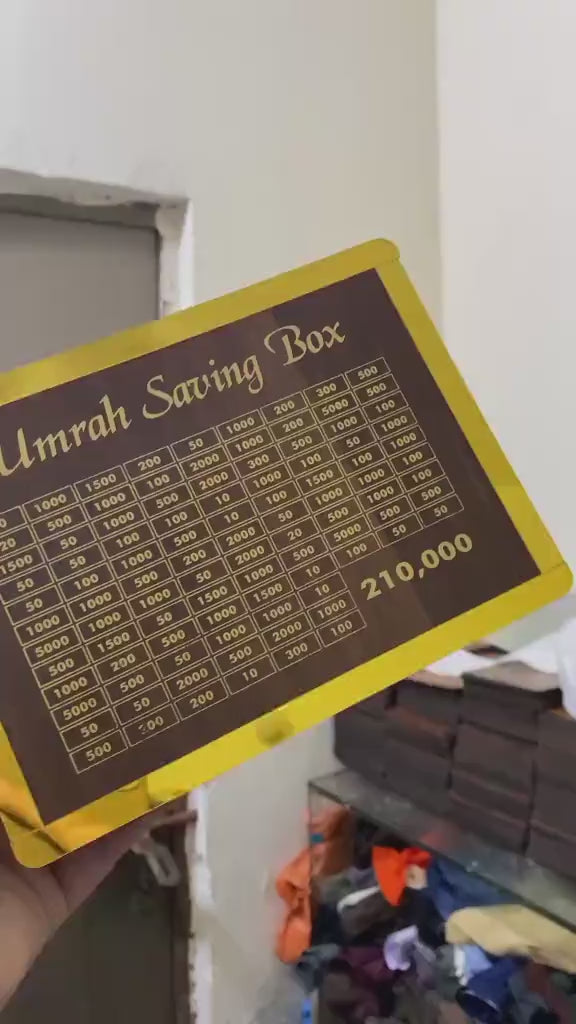 Umrah Saving Box
1000 1500 200 50 1000 200 300 500
20 500 1000 100 2000 1000 200 5000 500
1500 50 1000 500 2000 300 500 1000 100
50 50 100 100 10 1000 100 50 1000
50 100 500 200 10 100 1500 100 1000
1000 1000 1000 200 2000 50 50 1000 100
5000 500 1000 50 2000 20 500 1000 100
500 1500 50 1500 1000 500 5000 500 500
1000 200 500 1000 1500 10 100 50 50
5000 500 50 1000 1000 10
50 50 2000 500 2000 1000
500 200 10 300 100
210,000